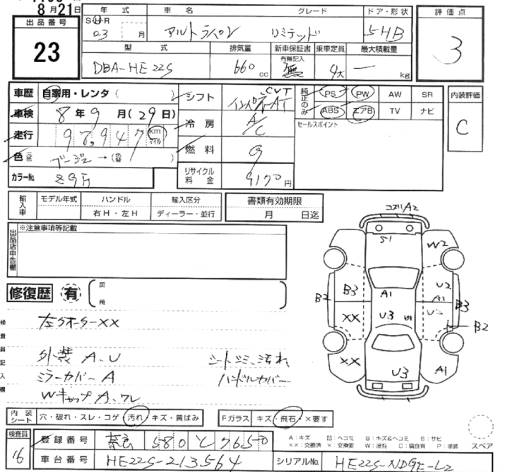 8月21日
出品番号
23
年式 車名 グレード ドア・形状
S H R
23 月 アルトラパン リミテッド 5HB
型式 排気量 新車保証書 乗車定員 最大積載量
DBA-HE22S 660cc 有無記入 無 4人 kg
評価点
3
車歴 自家用・レンタ ( ) シフト CVT インパネAT
車検 8年9月(29日) 冷房 A/C
走行 97,947 km マイル 燃料 G
色 ベージュ→(替 ) リサイクル料金 9170円
カラーNo.
純正のみ PS PW AW SR
ABS エアB TV ナビ
セールスポイント
内装評価
C
輸入車 モデル年式 ハンドル 輸入区分
右H・左H ディーラー・並行
書類有効期限
月 日迄
出品店申告欄
※注意事項等記載
修復歴 有
図 略
検査員記入欄
左クオーターXX
外装 A、U
ミラーカバー A
Wキャップ A、ワレ
シートシミ、汚れ
ハンドルカバー
コスリA2
S1 W2
B3 B3 A1 U2
B2 A1
XX U3 B2
XX U3 A1
内装シート 穴・破れ・スレ・コゲ 汚れ キズ・黄ばみ
Fガラス キズ 飛石 ×要す
検査員
16
登録番号 奈良 580 と 7657
車台番号 HE22S-213564
シリアルNo. HE22S-NDGE-L2
スペア